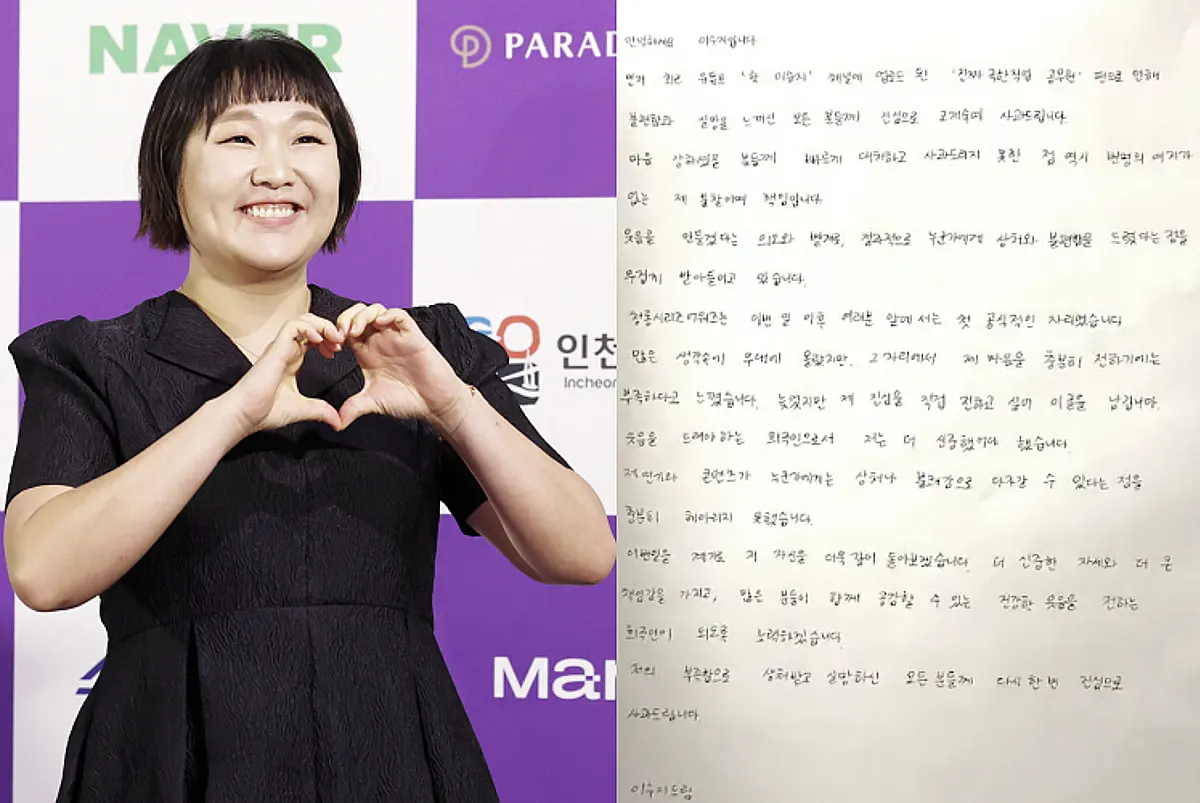 NAVER
PARAD
인천
Incheon
Mar
안녕하세요 이수지입니다
먼저 최근 유튜브 '핫 이슈지' 채널에 업로드 된 '진짜 극한직업 공무원' 편으로 인해
불편함과 실망을 느끼신 모든 분들께 진심으로 고개숙여 사과드립니다.
마음 상하셨을 분들께 빠르게 대처하고 사과드리지 못한 점 역시 변명의 여지가
없는 제 불찰이며 책임입니다
웃음을 만들겠다는 의도와 별개로, 결과적으로 누군가에게 상처와 불편함을 드렸다는 점을
무겁게 받아들이고 있습니다.
청룡시리즈어워즈는 이번 일 이후 여러분 앞에 서는 첫 공식적인 자리였습니다
많은 생각속에 무대에 올랐지만. 그 자리에서 제 마음을 충분히 전하기에는
부족하다고 느꼈습니다. 늦었지만 제 진심을 직접 전하고 싶어 이글을 남깁니다.
웃음을 드려야 하는 희극인으로서 저는 더 신중했어야 했습니다.
제 연기와 콘텐츠가 누군가에게는 상처나 불쾌감으로 다가갈 수 있다는 점을
충분히 헤아리지 못했습니다.
이번일을 계기로 저 자신을 더욱 깊이 돌아보겠습니다. 더 신중한 자세와 더 큰
책임감을 가지고, 많은 분들이 함께 공감할 수 있는 건강한 웃음을 전하는
희극인이 되도록 노력하겠습니다.
저의 부족함으로 상처받고 실망하신 모든 분들께 다시 한 번 진심으로
사과드립니다.
이수지 드림